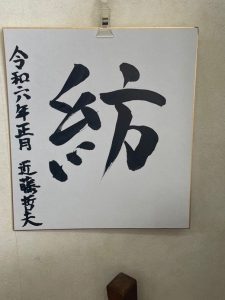 紡
令和六年正月 近藤哲夫